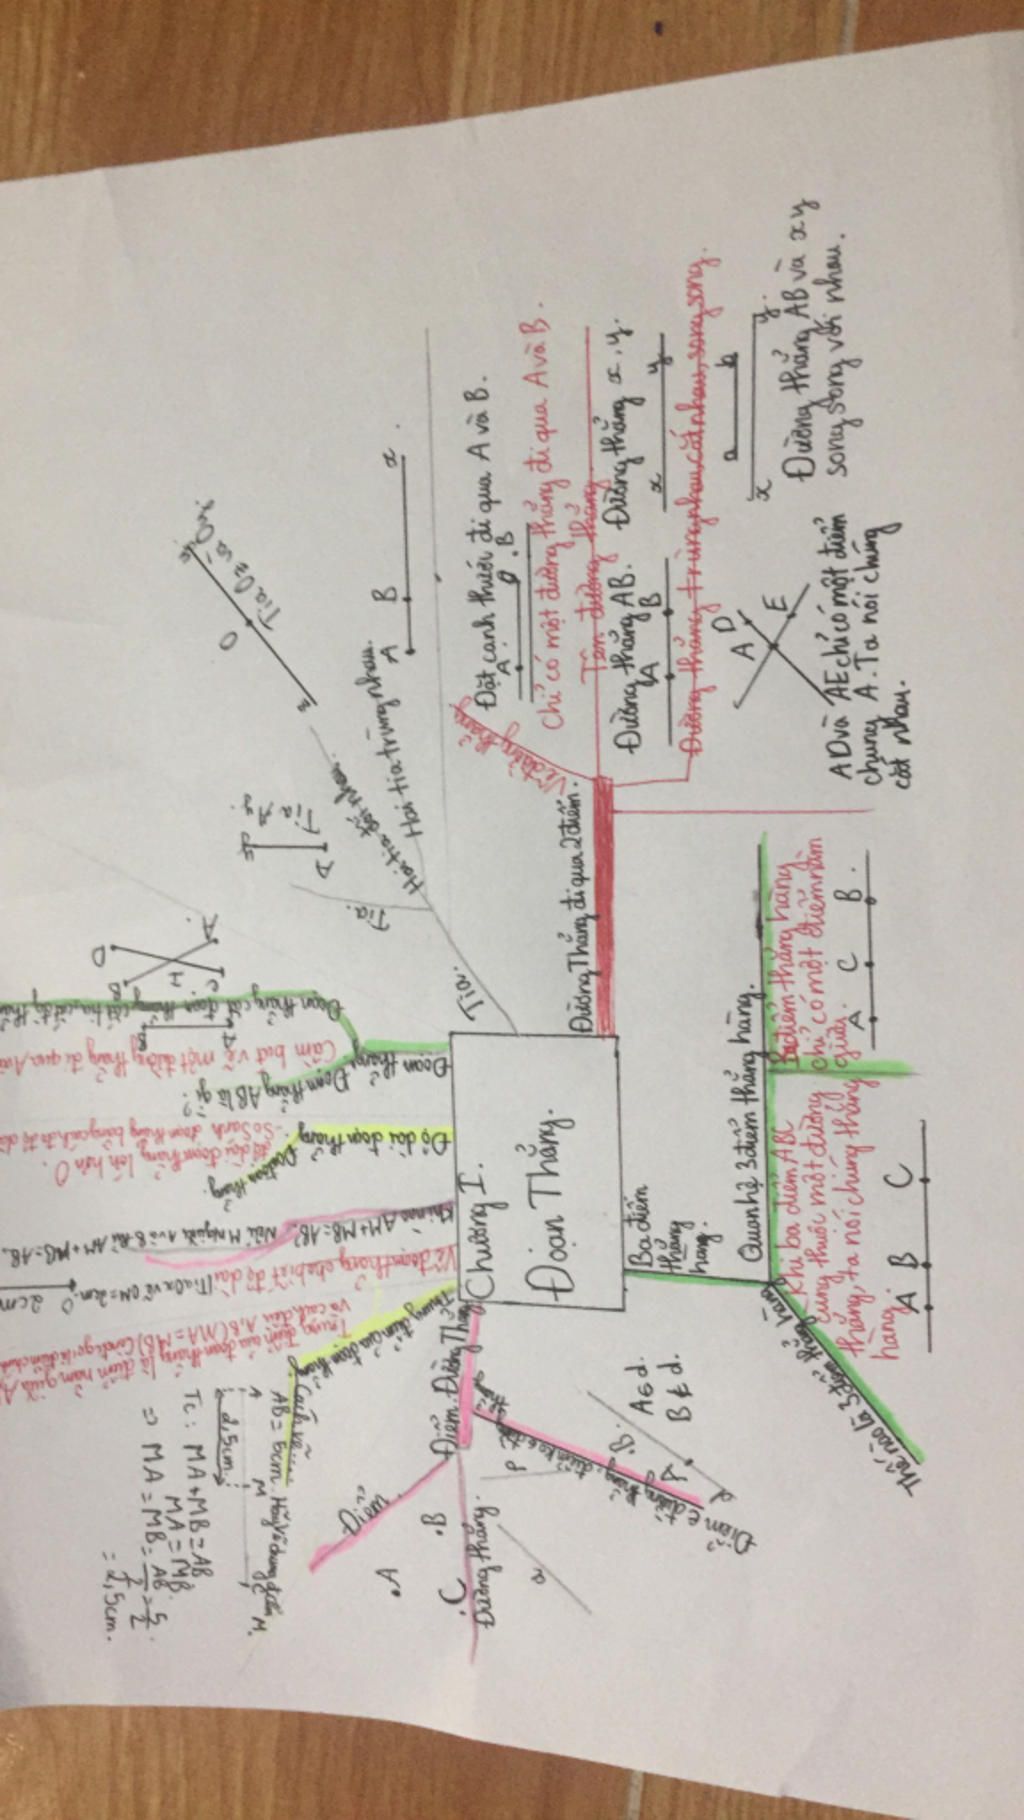 Chương I.
Đoạn Thẳng.
Điểm. Đường Thẳng
Điểm
A
B
C
Đường thẳng.
a
p
Điểm ∈ đường thẳng, điểm
B
A
d
A ∈ d.
B ∉ d.
Ba điểm
thẳng
hàng.
Quan hệ 3 điểm thẳng hàng.
Thế nào là 3 điểm thẳng hàng
Khi ba điểm ABC
cùng thuộc một đường
thẳng, ta nói chúng thẳng
hàng.
A B C
Ba điểm thẳng hàng
chỉ có một điểm nằm
giữa.
A C B.
Đường Thẳng đi qua 2 điểm.
Vẽ đường thẳng
Đặt cạnh thước đi qua A và B.
A B
Chỉ có một đường thẳng đi qua A và B.
Tên đường thẳng
Đường thẳng AB. Đường thẳng x, y.
A B
x y
Đường thẳng trùng nhau, cắt nhau, song song.
A D
E
AD và AE chỉ có một điểm
chung A. Ta nói chúng
cắt nhau.
a b
x y
Đường thẳng AB và xy
song song với nhau.
Tia.
Tia.
Hai tia trùng nhau.
A B x
O
Đoạn thẳng
Đoạn thẳng AB là gì?
Cầm bút vẽ một đường thẳng đi qua
D
H
C
Độ dài đoạn thẳng
- So sánh đoạn thẳng bằng cách đo độ dài
độ dài đoạn thẳng lớn hơn 0.
Khi nào AM + MB = AB?
Nếu M nằm giữa A và B thì AM + MB = AB.
Vẽ đoạn thẳng cho biết độ dài
Tia Ox vẽ OM = 2cm.
O 2cm
Trung điểm của đoạn thẳng
Trung điểm của đoạn thẳng là điểm nằm giữa A,
và cách đều A, B (MA = MB)
Cách vẽ
AB = 5cm.
2,5cm
A M
Tc: MA + MB = AB
MA = MB.
=> MA = MB = AB/2 = 5/2
= 2,5cm.